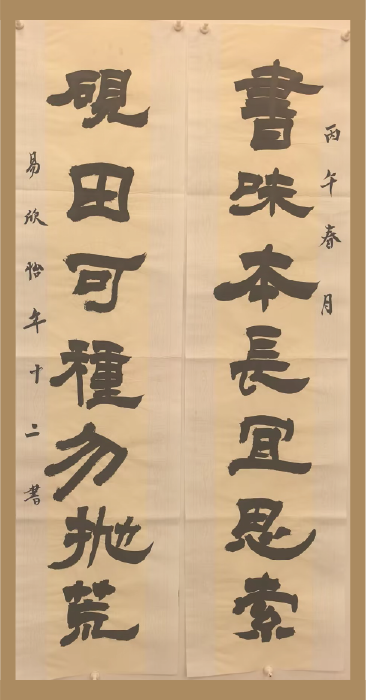 丙午春月
書味本長宜思索
硯田可種勿抛荒
易欣怡年十二書